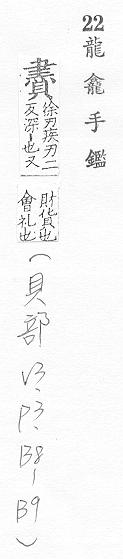 22龍龕手鑑
賮徐刃疾刃二反深丨也又財貨也會礼也(貝部 V3·P3·B8-B9)